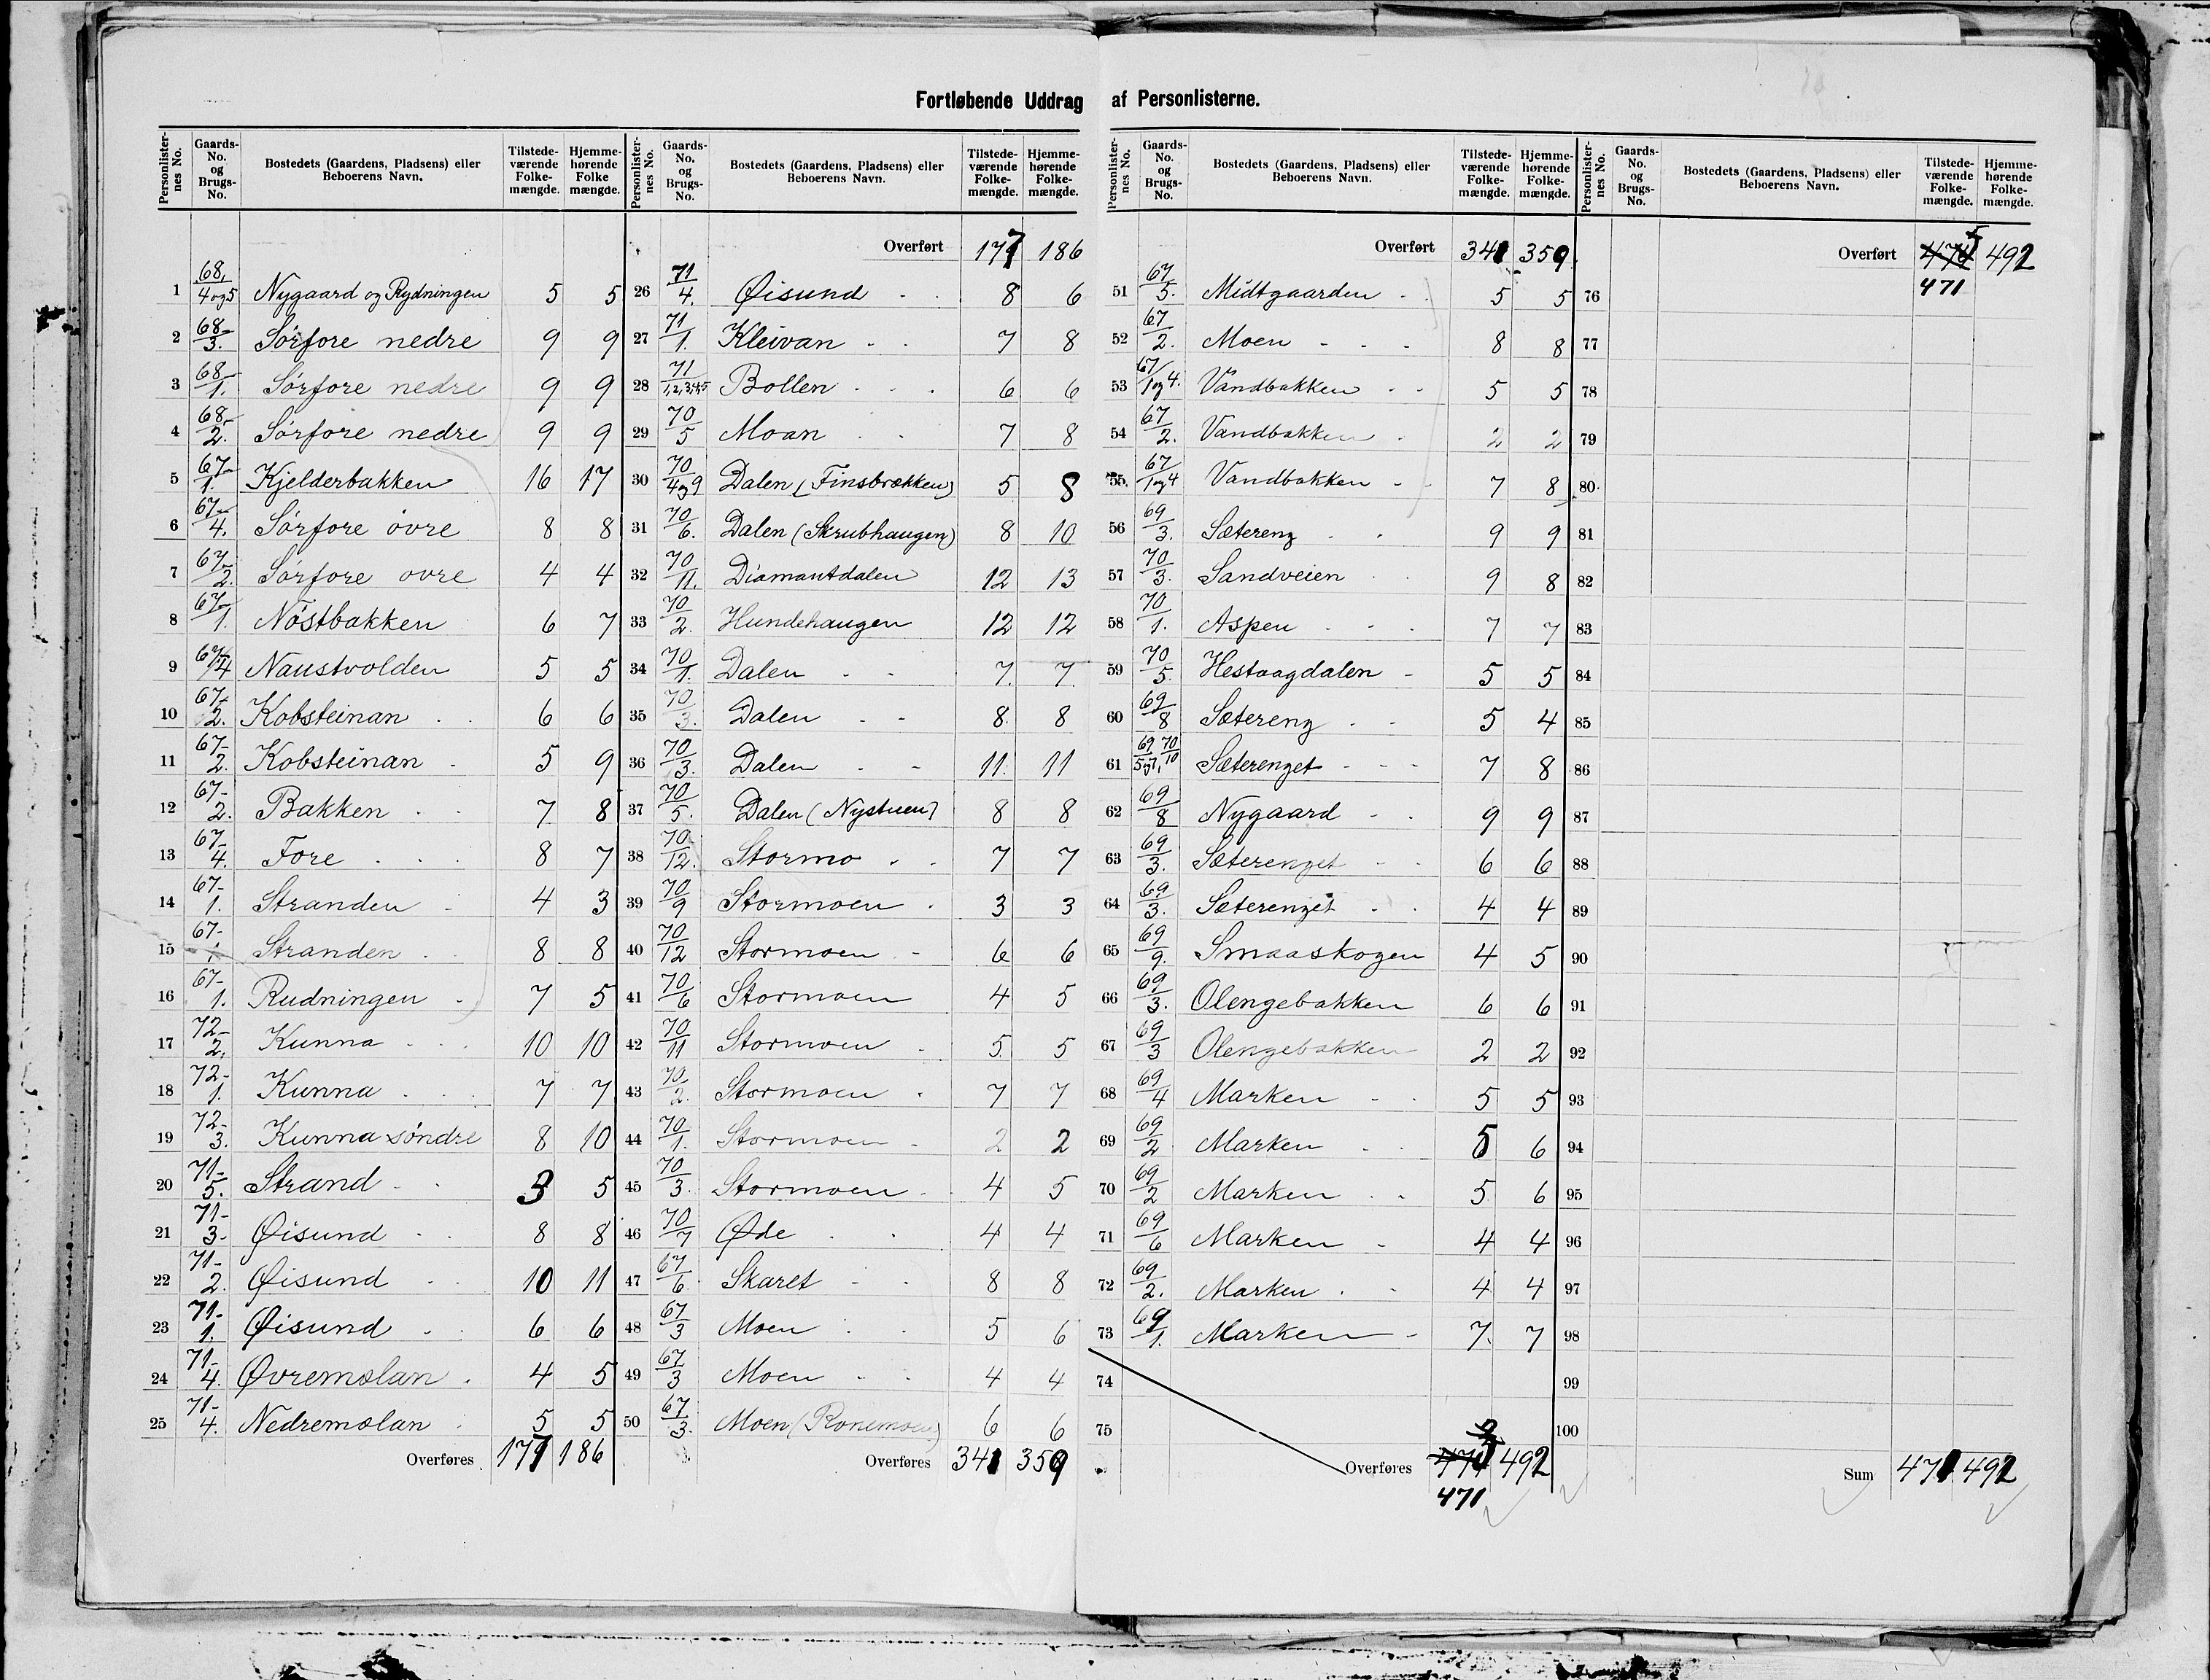 Fortløbende Uddrag af Personlisterne.
Personlisternes No. | Gaards-No. og Brugs-No. | Bostedets (Gaardens, Pladsens) eller Beboerens Navn. | Tilstedeværende Folkemængde. | Hjemmehørende Folkemængde.
1 68/4og5 Nygaard og Rydningen 5 5
2 68/3. Sørfore nedre 9 9
3 68/1. Sørfore nedre 9 9
4 68/2. Sørfore nedre 9 9
5 67/1. Kjelderbakken 16 17
6 67/4. Sørfore øvre 8 8
7 67/2. Sørfore øvre 4 4
8 67/1. Nøstbakken 6 7
9 67/4 Naustvolden 5 5
10 67/2. Kobsteinan 6 6
11 67/2. Kobsteinan 5 9
12 67/2. Bakken 7 8
13 67/4. Fore 8 7
14 67/1. Stranden 4 3
15 67/1 Stranden 8 8
16 67/1. Rudningen 7 5
17 72/2. Kunna 10 10
18 72/1. Kunna 7 7
19 72/3. Kunna søndre 8 10
20 71/5. Strand 3 5
21 71/3. Øisund 8 8
22 71/2. Øisund 10 11
23 71/1. Øisund 6 6
24 71/4. Øvremølan 4 5
25 71/4. Nedremølan 5 5
Overføres 177 186
Overført 177 186
26 71/4. Øisund 8 6
27 71/1. Kleivan 7 8
28 71/1,2,3,4,5 Bollen 6 6
29 70/5 Moan 7 8
30 70/4og9 Dalen (Finsbrækken) 5 8
31 70/6. Dalen (Skrubhaugen) 8 10
32 70/11. Diamantdalen 12 13
33 70/2. Hundehaugen 12 12
34 70/1. Dalen 7 7
35 70/3. Dalen 8 8
36 70/3. Dalen 11 11
37 70/5. Dalen (Nystuen) 8 8
38 70/12. Stormo 7 7
39 70/9 Stormoen 3 3
40 70/12 Stormoen 6 6
41 70/6 Stormoen 4 5
42 70/11 Stormoen 5 5
43 70/2. Stormoen 7 7
44 70/1. Stormoen 2 2
45 70/3. Stormoen 4 5
46 70/7 Øde 4 4
47 67/6 Skaret 8 8
48 67/3 Moen 5 6
49 67/3 Moen 4 4
50 67/3. Moen (Ronemoen) 6 6
Overføres 341 359
Overført 341 359
51 67/5. Midtgaarden 5 5
52 67/2. Moen 8 8
53 67/1og4. Vandbakken 5 5
54 67/2. Vandbakken 2 2
55. 67/1og4 Vandbakken 7 8
56 69/3. Sætereng 9 9
57 70/3. Sandveien 9 8
58 70/1. Aspen 7 7
59 70/5. Hestaagdalen 5 5
60 69/8 Sætereng 5 4
61 69/5og7, 70/10 Sæterenget 7 8
62 69/8 Nygaard 9 9
63 69/3. Sæterenget 6 6
64 69/3. Sæterenget 4 4
65 69/9. Smaaskogen 4 5
66 69/3. Olengebakken 6 6
67 69/3 Olengebakken 2 2
68 69/4 Marken 5 5
69 69/2 Marken 5 6
70 69/2 Marken 5 6
71 69/6 Marken 4 4
72 69/2. Marken 4 4
73 69/1. Marken 7 7
74
75
Overføres 492
471
Overført 492
471
76
77
78
79
80
81
82
83
84
85
86
87
88
89
90
91
92
93
94
95
96
97
98
99
100
Sum 471 492